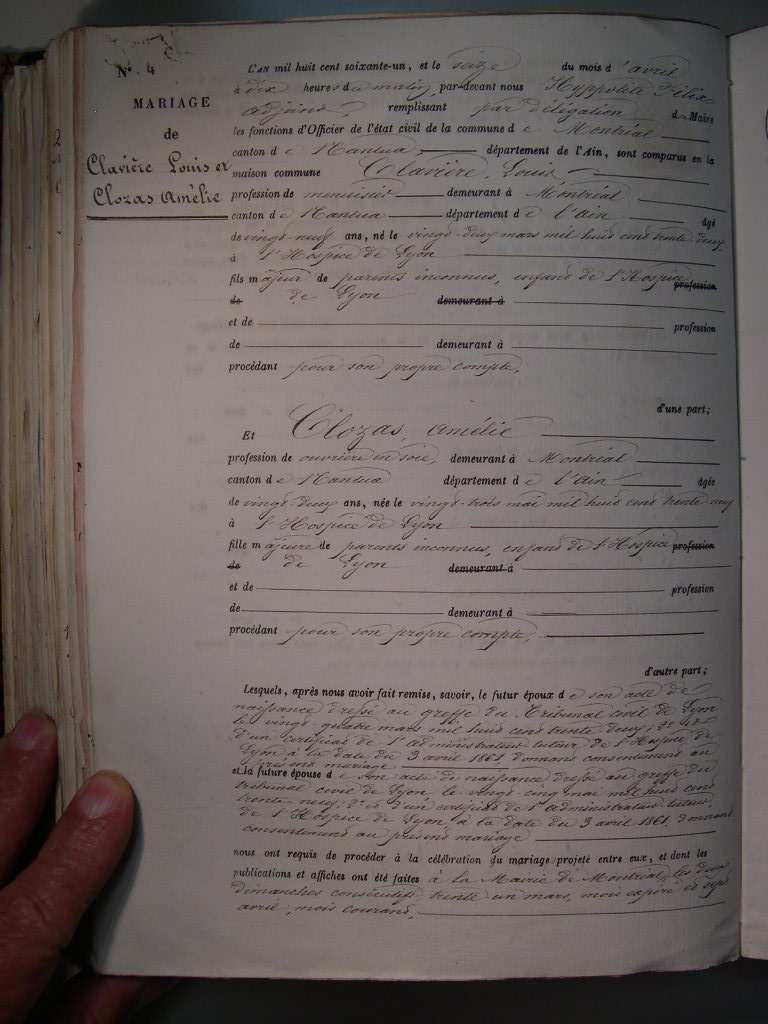 N.° 4
MARIAGE
de
Clavière Louis et
Clozas Amélie
L'AN mil huit cent soixante-un, et le seize du mois d'avril
à dix heures du matin par-devant nous Hyppolite Félix
adjoint, remplissant par délégation d Maire
les fonctions d'Officier de l'état civil de la commune de Montréal
canton de Nantua, département de l'Ain, sont comparus en la
maison commune Clavière, Louis,
profession de menuisier demeurant à Montréal
canton de Nantua département de l'ain âgé
de vingt-neuf ans, né le vingt-deux mars mil huit cent trente deux
à l'Hospice de Lyon
fils majeur de parents inconnus, enfant de l'Hospice profession
de de Lyon demeurant à
et de profession
de demeurant à
procédant pour son propre compte,
d'une part;
Et Clozas, amélie
profession de ouvrière en soie, demeurant à Montréal
canton de Nantua département de l'ain âgée
de vingt-deux ans, née le vingt-trois mai mil huit cent trente neuf
à l'Hospice de Lyon
fille majeure de parents inconnus, enfant de l'Hospice profession
de de Lyon demeurant à
et de profession
de demeurant à
procédant pour son propre compte,
d'autre part;
Lesquels, après nous avoir fait remise, savoir, le futur époux de son acte de
naissance dressé au greffe du Tribunal civil de Lyon
le vingt-quatre mars mil huit cent trente deux; 2° et
d'un certificat de l'administrateur tuteur de l'Hospice de
Lyon à la date du 3 avril 1861, donnant consentement au
présent mariage
et la future épouse de son acte de naissance dressé au greffe du
tribunal civil de Lyon le vingt cinq mai mil huit cent
trente neuf; 2° et d'un certificat de l'administrateur tuteur
de l'Hospice de Lyon, à la date du 3 avril 1861, donnant
consentement au présent mariage
nous ont requis de procéder à la célébration du mariage projeté entre eux, et dont les
publications et affiches ont été faites à la Mairie de Montréal, les deux
dimanches consécutifs, trente un mars, mois expiré et sept
avril, mois courant,